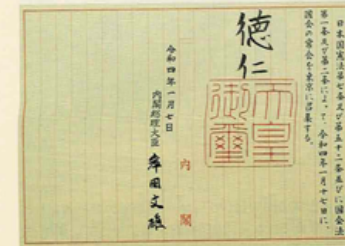 日本国憲法第七条及び第五十二条並びに国会法
第一条及び第二条によって、令和四年一月十七日に、
国会の常会を東京に召集する。
徳仁
天皇
御璽
内閣
令和四年一月七日
内閣総理大臣 岸田文雄